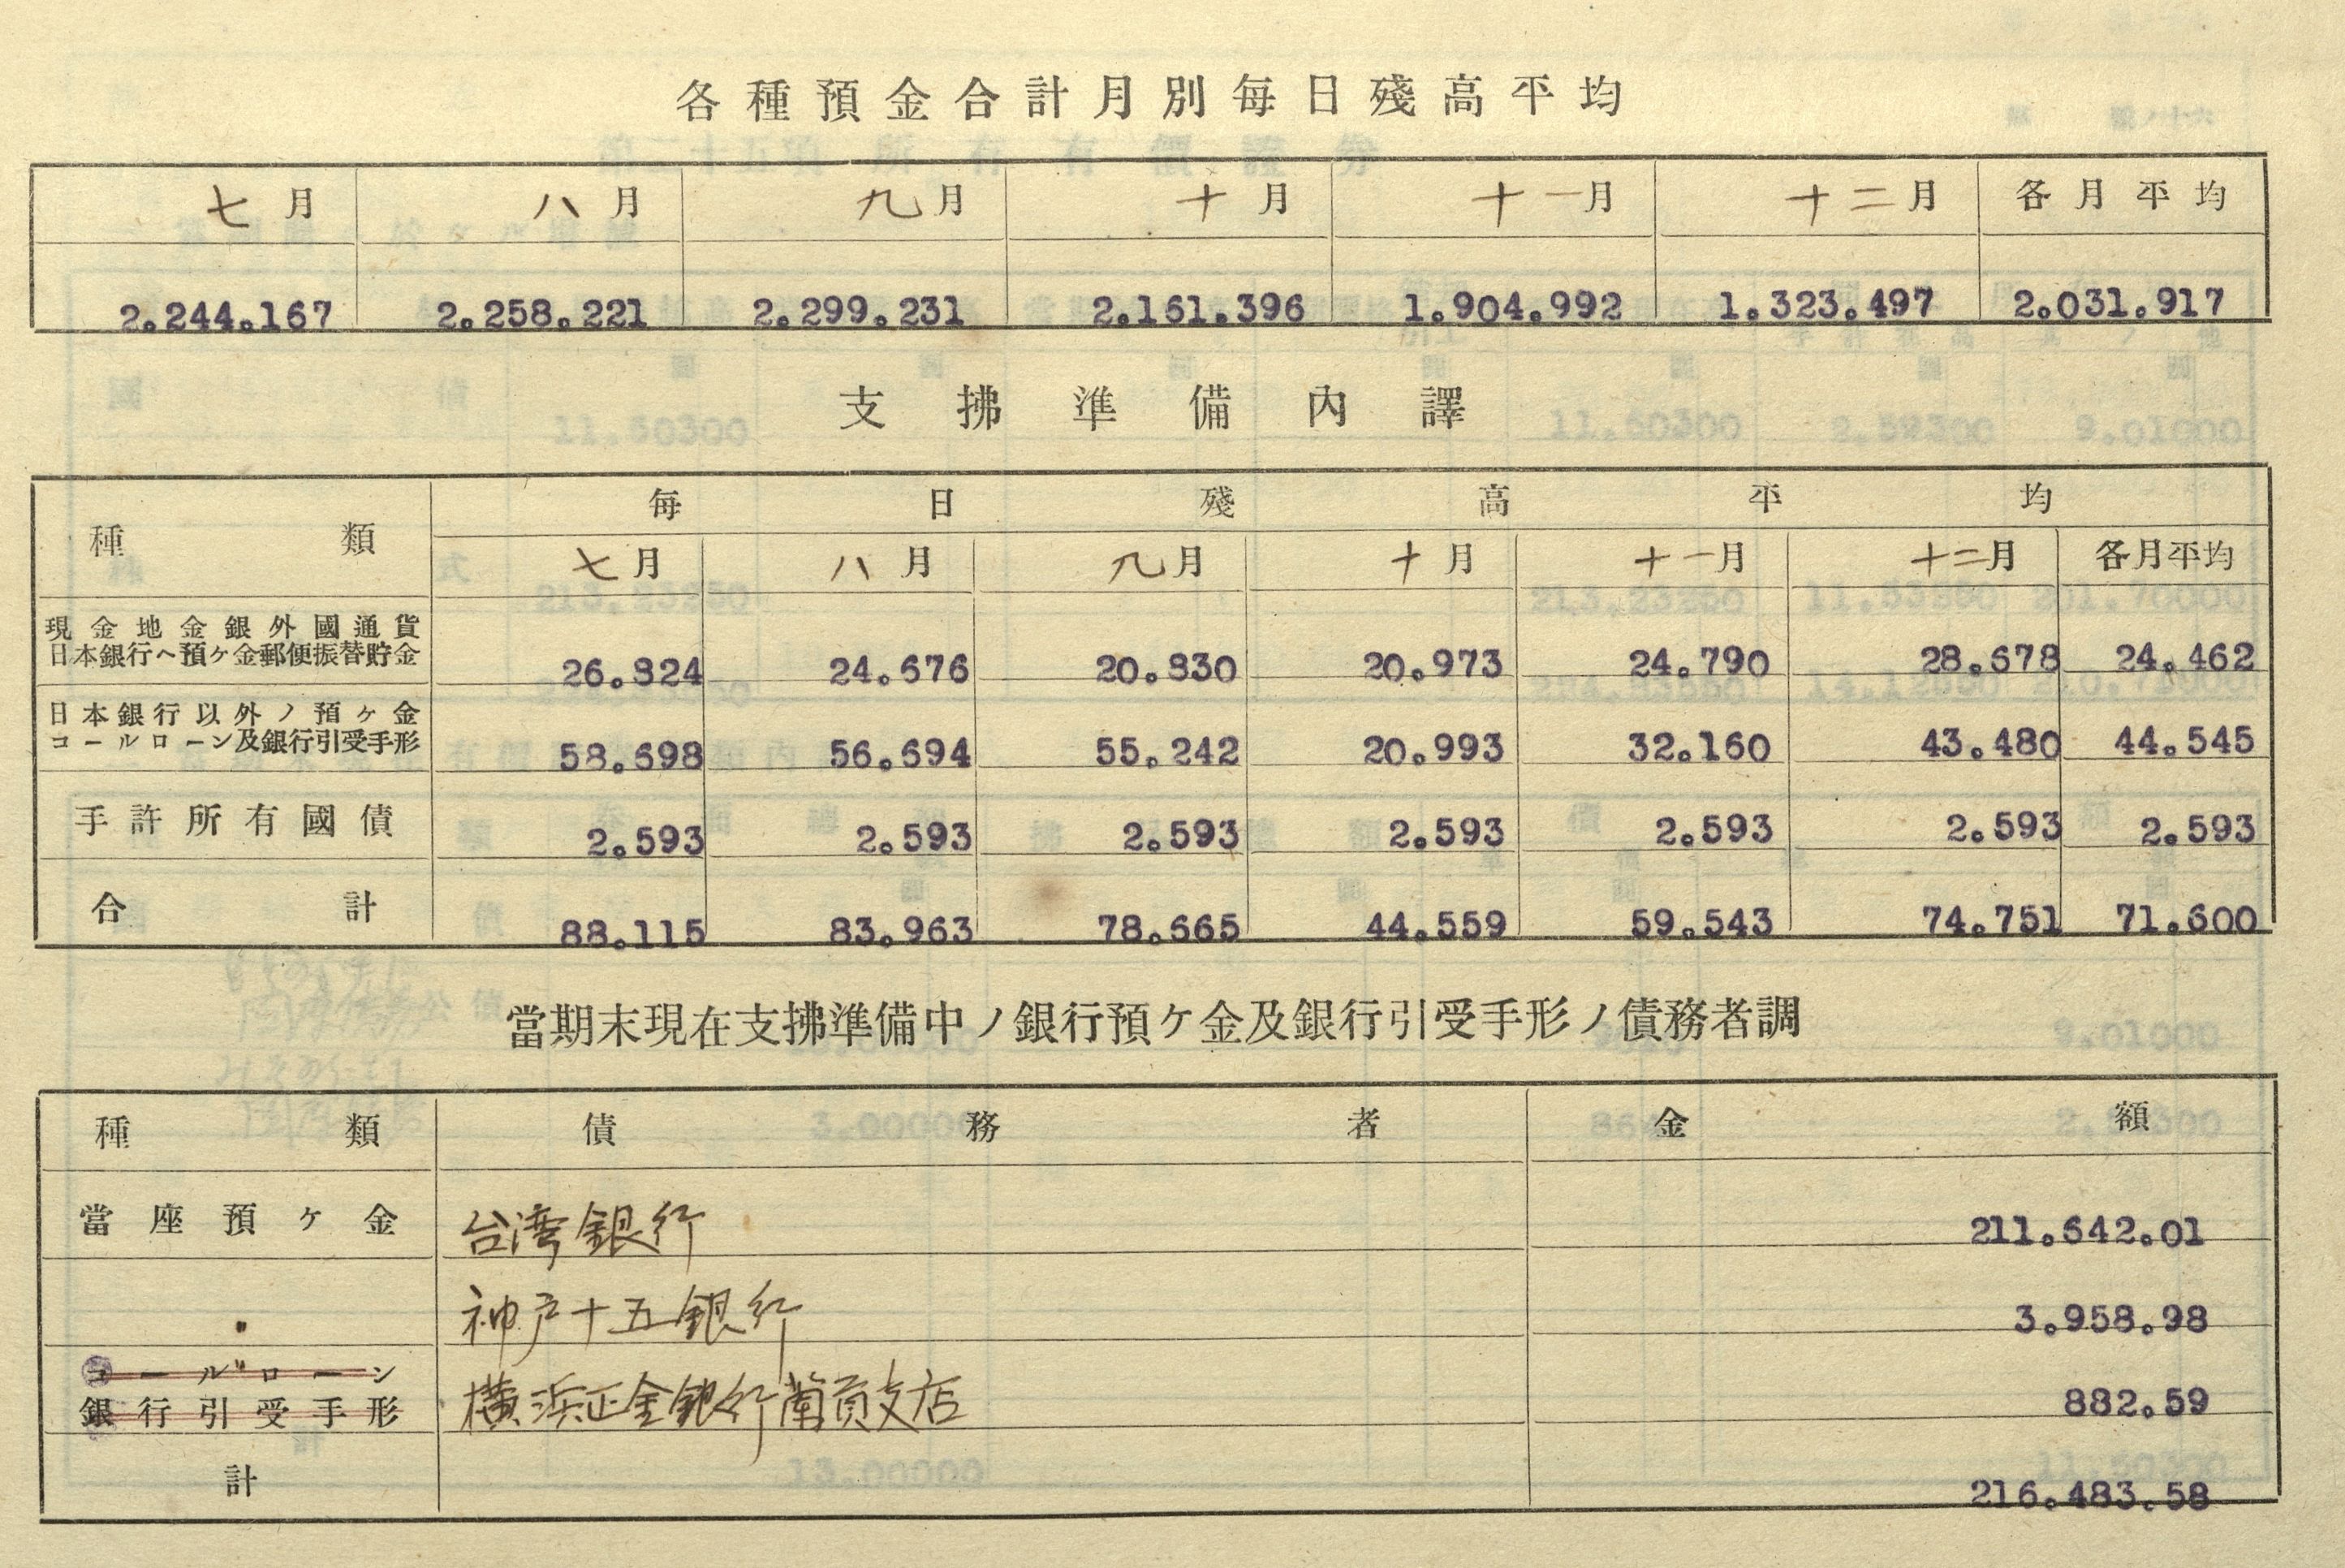 各種預金合計月別每日殘高平均
七月 八月 九月 十月 十一月 十二月 各月平均
2.244.167 2.258.221 2.299.231 2.161.396 1.904.992 1.323.497 2.031.917
支拂準備內譯
種類 每日殘高平均
七月 八月 九月 十月 十一月 十二月 各月平均
現金地金銀外國通貨
日本銀行ヘ預ケ金郵便振替貯金 26.824 24.676 20.830 20.973 24.790 28.678 24.462
日本銀行以外ノ預ケ金
コールローン及銀行引受手形 58.698 56.694 55.242 20.993 32.160 43.480 44.545
手許所有國債 2.593 2.593 2.593 2.593 2.593 2.593 2.593
合計 88.115 83.963 78.665 44.559 59.543 74.751 71.600
當期末現在支拂準備中ノ銀行預ケ金及銀行引受手形ノ債務者調
種類 債務者 金額
當座預ケ金 台湾銀行 211.642.01
〃 神戸十五銀行 3.958.98
コールローン
銀行引受手形 横浜正金銀行蘭貢支店 882.59
計 216.483.58